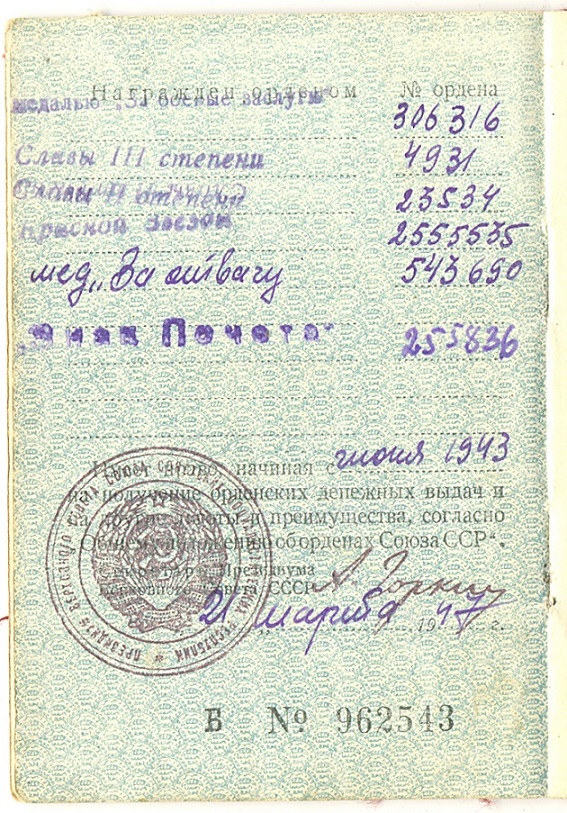 Награжден орденом № ордена
медалью „За боевые заслуги" 306316
Славы III степени 4931
Славы II степени 23534
Красной Звезды 2555535
мед. „За отвагу 543650
„Знак Почета" 255836
Имеет право, начиная с июня 1943
на получение орденских денежных выдач и
на другие льготы и преимущества, согласно
„Общему положению об орденах Союза ССР".
Секретарь Президиума
Верховного Совета СССР А. Горкин
21 марта 1947 г.
Б № 962543